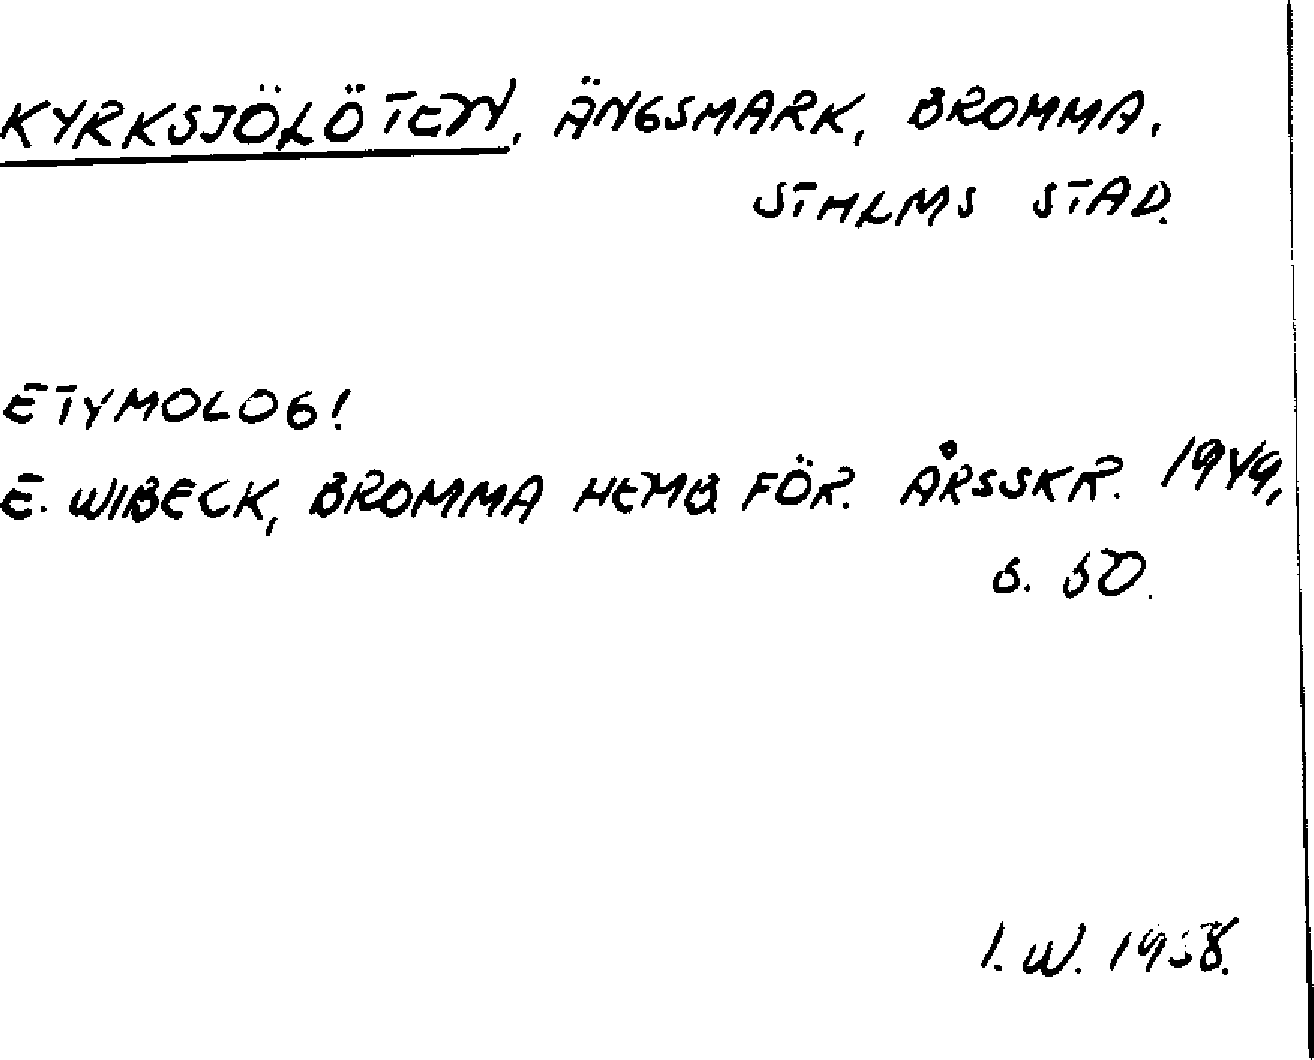 KYRKSJÖLÖTEN, ÄNGSMARK, BROMMA.
STHLMS STAD.
ETYMOLOGI
E. WIBECK, BROMMA HEMB FÖR. ÅRSSKR. 1949,
S. 50.
I. W. 1958.